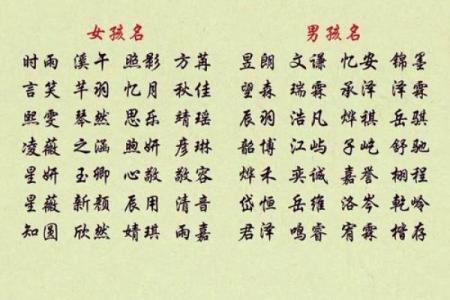 女孩名 男孩名
时雨 溪午 照影 方苒 昱朗 文谦 忆安 锦墨
言笑 芊羽 忆月 秋佳 望森 瑞霖 承泽 泽霖
熙雯 琴然 思乐 靖瑶 辰羽 浩凡 烨祺 岳骐
凌薇 之涵 煦妍 彦琳 韶博 江屿 子屹 舒驰
星妍 玉卿 心敬 敬容 烨禾 奕诚 嘉誉 栩程
星薇 新颜 辰用 清音 岱恒 岳维 洛岑 乾岭
知圆 欣然 婧琪 雨嘉 君泽 鸣睿 宥霖 楷存